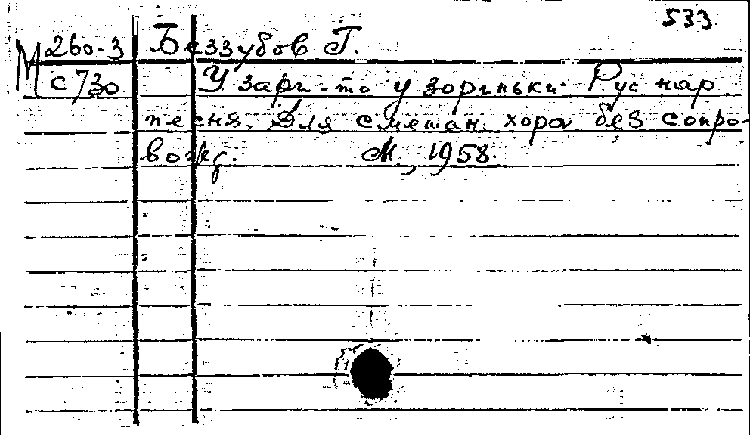 533
М 260-3 Беззубов Г.
С730 У зари-то у зориньки. Рус нар
песня. Для смешан. хора без сопро-
вожд. М., 1958.